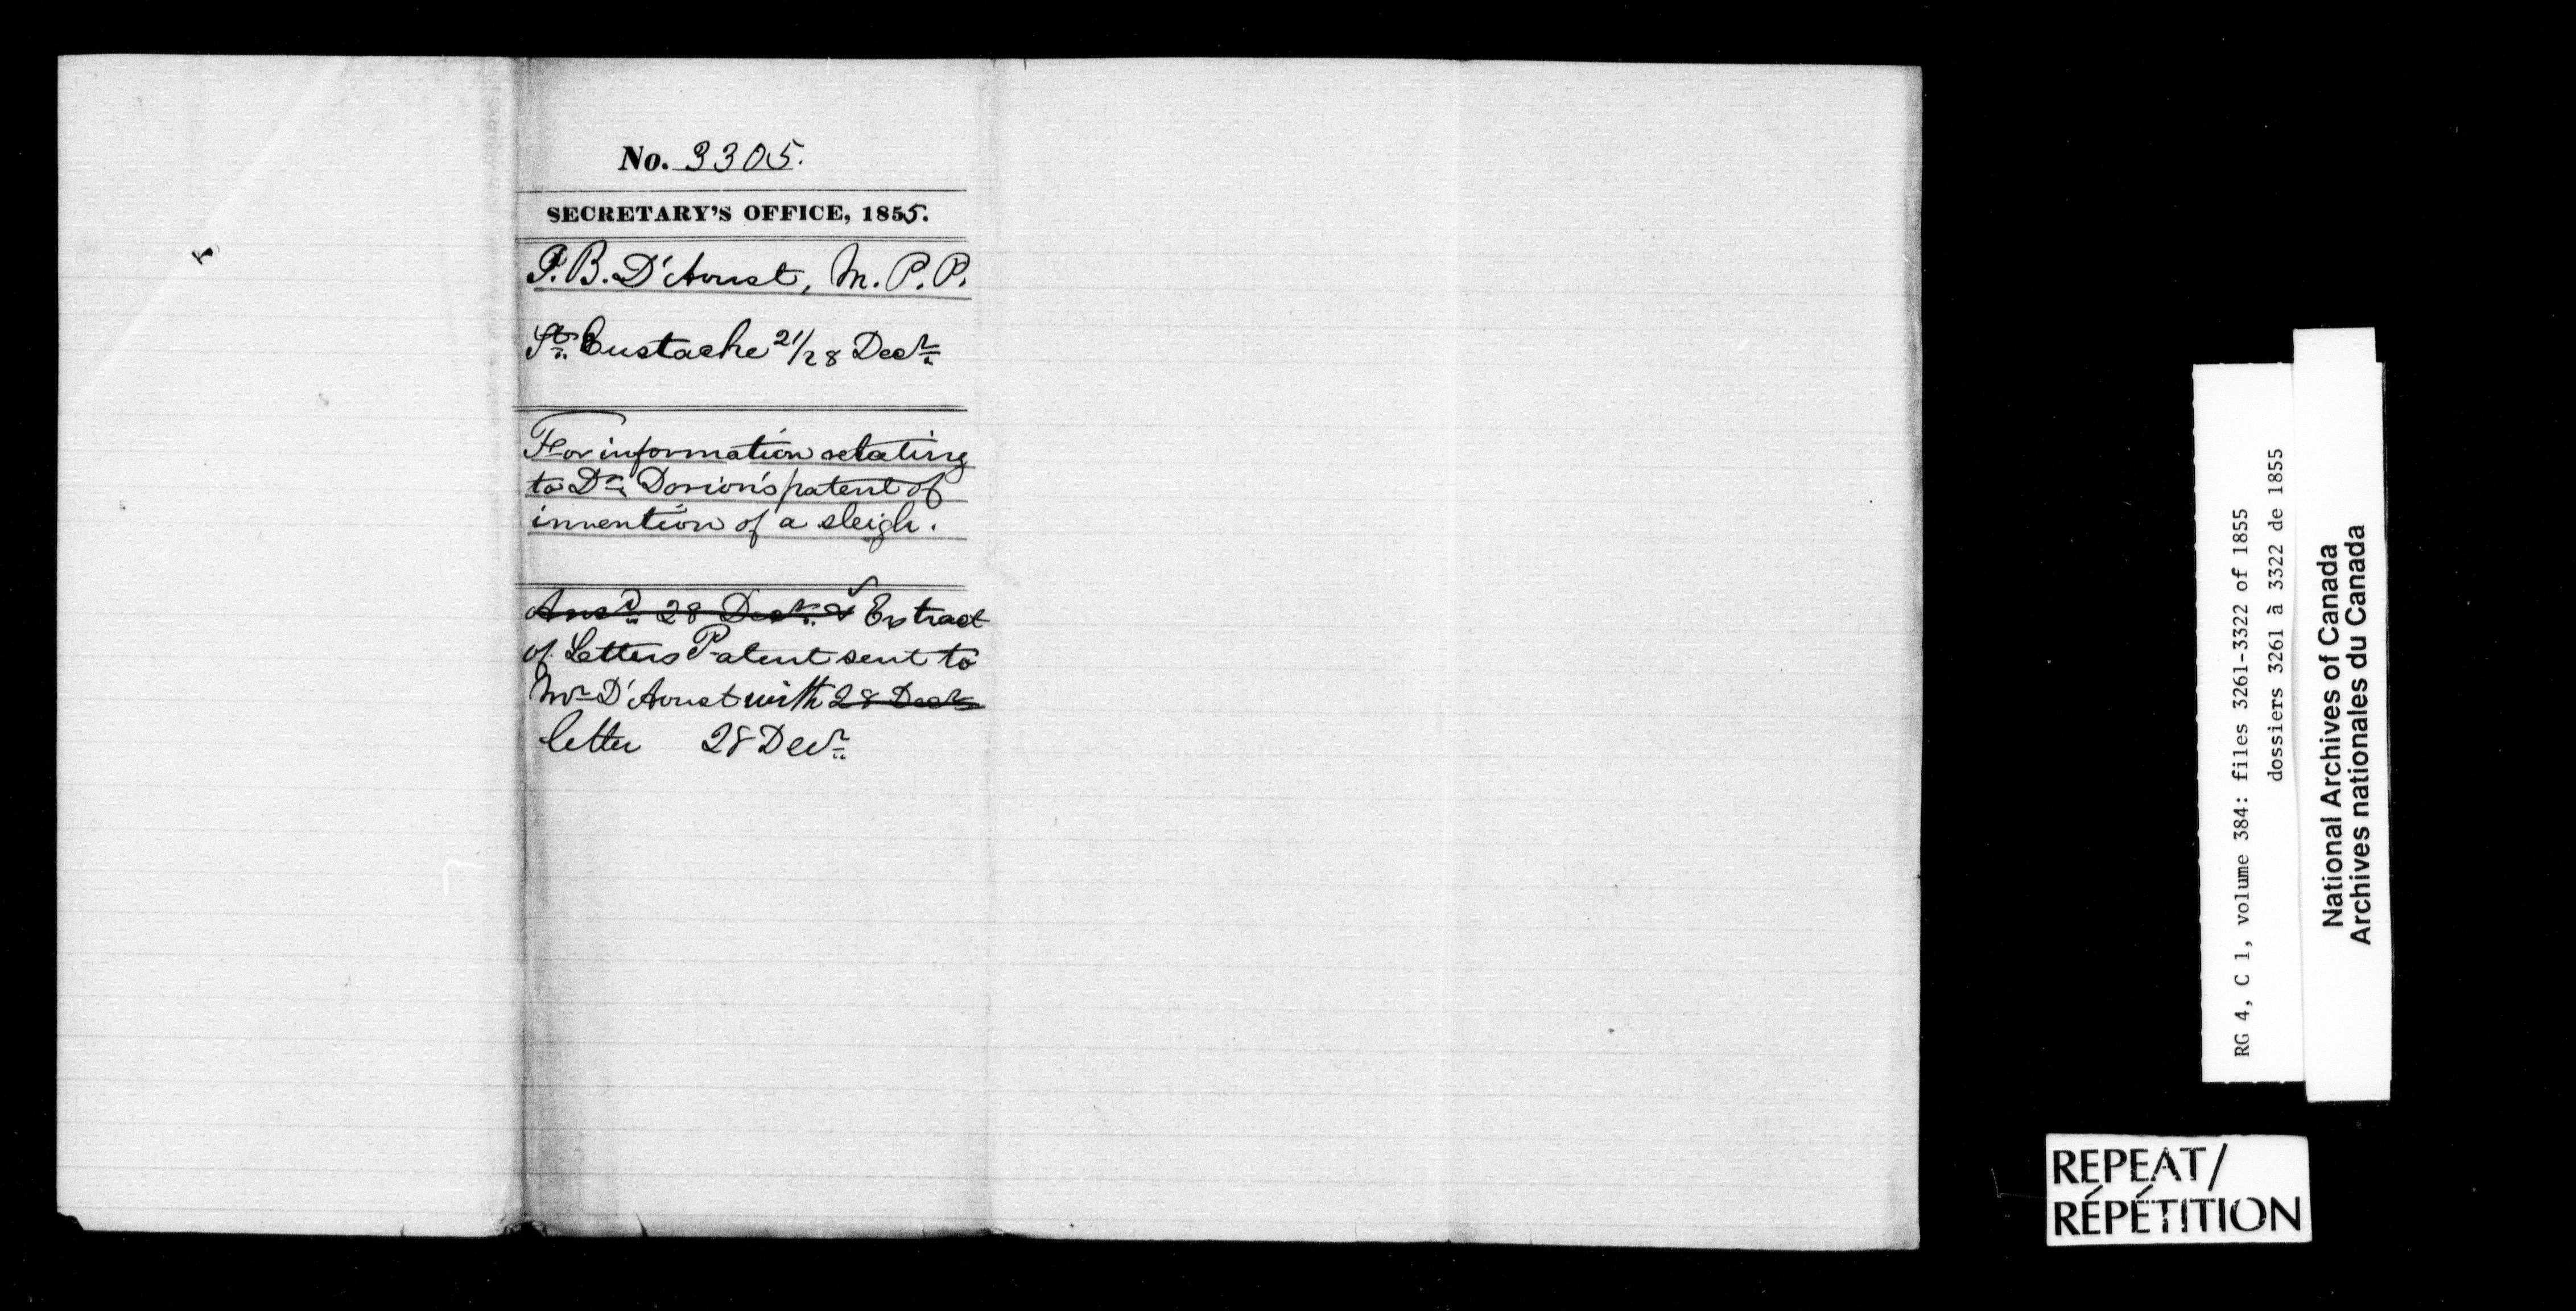 No. 3305.
SECRETARY'S OFFICE, 1855.
J. B. D'Aoust, M. P. P.
St. Eustache 21/28 Decr.
For information relating
to Dr. Dorion's patent of
invention of a sleigh.
Ansd. 28 Decr. & Extract
of Letters Patent sent to
Mr D'Aoust with 28 Decr
letter 28 Decr.
RG 4, C 1, volume 384: files 3261-3322 of 1855
dossiers 3261 à 3322 de 1855
National Archives of Canada
Archives nationales du Canada
REPEAT/
RÉPÉTITION